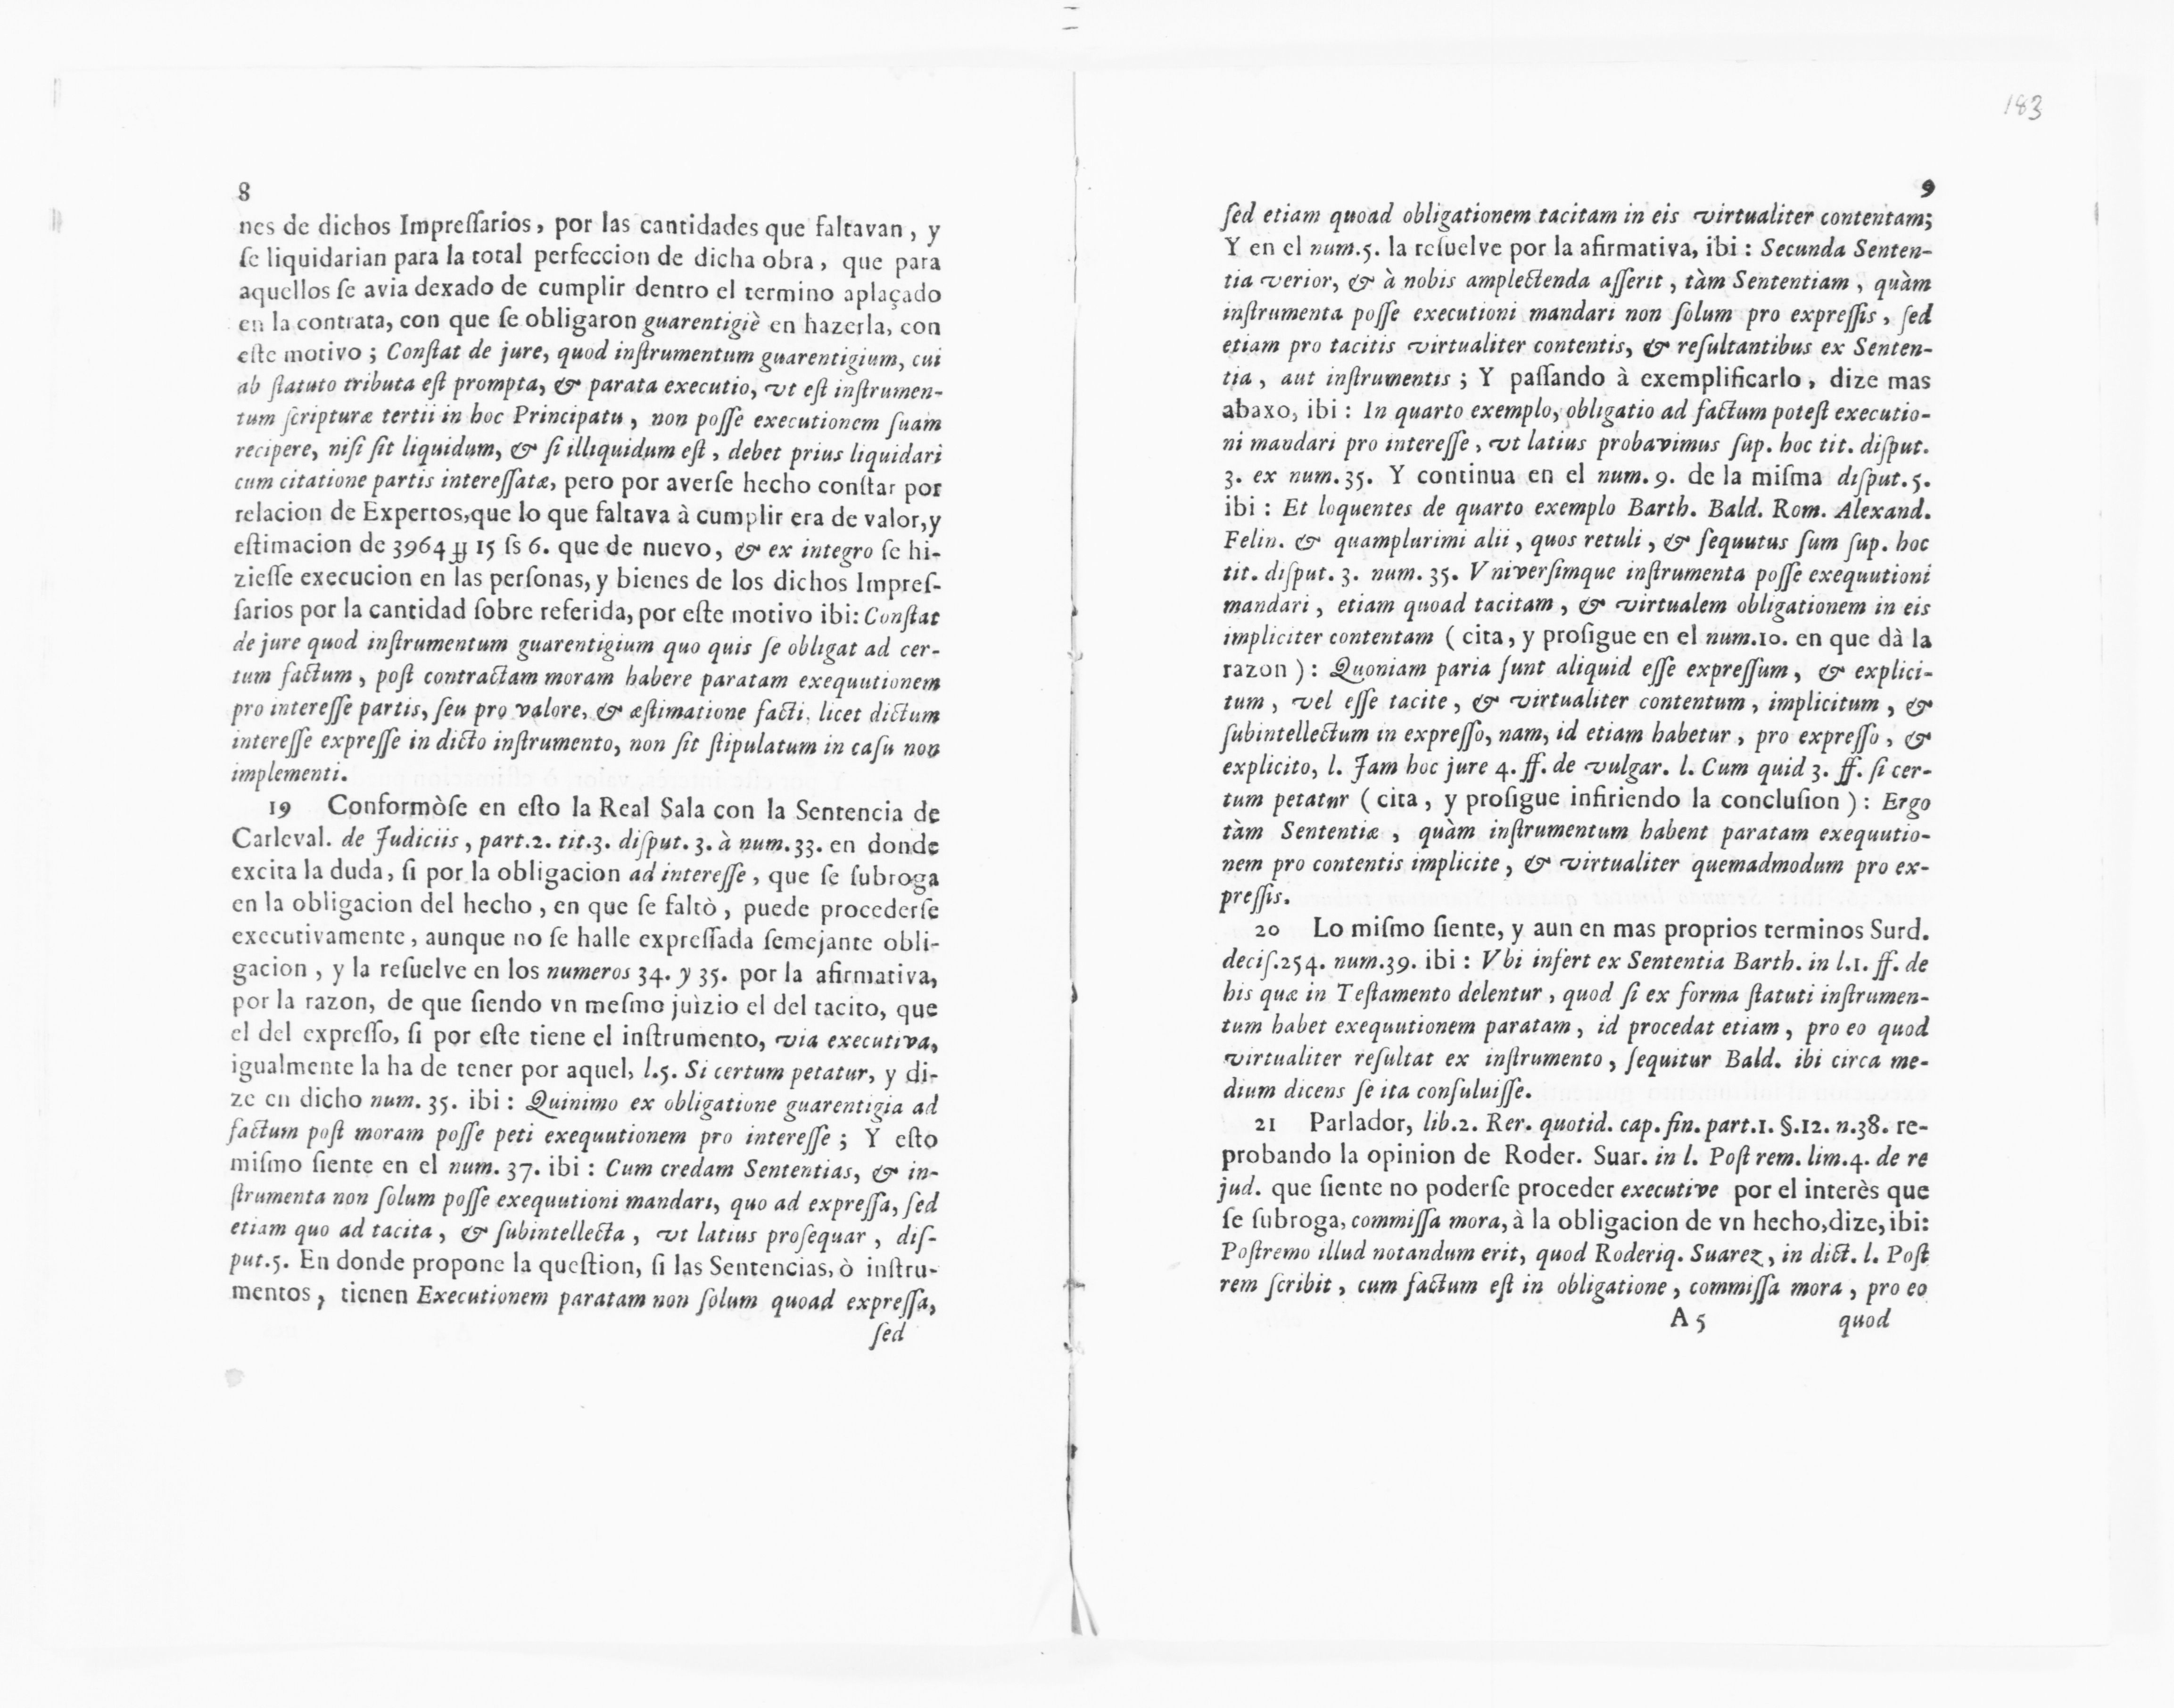 8
nes de dichos Impreſſarios, por las cantidades que faltavan, y
ſe liquidarian para la total perfeccion de dicha obra, que para
aquellos ſe avia dexado de cumplir dentro el termino aplaçado
en la contrata, con que ſe obligaron guarentigiè en hazerla, con
eſte motivo; Conſtat de jure, quod inſtrumentum guarentigium, cui
ab ſtatuto tributa eſt prompta, & parata executio, vt eſt inſtrumen-
tum ſcripturæ tertii in hoc Principatu, non poſſe executionem ſuam
recipere, niſi ſit liquidum, & ſi illiquidum eſt, debet prius liquidari
cum citatione partis intereſſatæ, pero por averſe hecho conſtar por
relacion de Expertos, que lo que faltava à cumplir era de valor, y
eſtimacion de 3964 ₶ 15 ſs 6. que de nuevo, & ex integro ſe hi-
zieſſe execucion en las perſonas, y bienes de los dichos Impreſ-
ſarios por la cantidad ſobre referida, por eſte motivo ibi: Conſtat
de jure quod inſtrumentum guarentigium quo quis ſe obligat ad cer-
tum factum, poſt contractam moram habere paratam exequutionem
pro intereſſe partis, ſeu pro valore, & æſtimatione facti, licet dictum
intereſſe expreſſe in dicto inſtrumento, non ſit ſtipulatum in caſu non
implementi.
19 Conformòſe en eſto la Real Sala con la Sentencia de
Carleval. de Judiciis, part.2. tit.3. diſput. 3. à num.33. en donde
excita la duda, ſi por la obligacion ad intereſſe, que ſe ſubroga
en la obligacion del hecho, en que ſe faltò, puede procederſe
executivamente, aunque no ſe halle expreſſada ſemejante obli-
gacion, y la reſuelve en los numeros 34. y 35. por la afirmativa,
por la razon, de que ſiendo vn meſmo juìzio el del tacito, que
el del expreſſo, ſi por eſte tiene el inſtrumento, via executiva,
igualmente la ha de tener por aquel, l.5. Si certum petatur, y di-
ze en dicho num. 35. ibi: Quinimo ex obligatione guarentigia ad
factum poſt moram poſſe peti exequutionem pro intereſſe; Y eſto
miſmo ſiente en el num. 37. ibi: Cum credam Sententias, & in-
ſtrumenta non ſolum poſſe exequutioni mandari, quo ad expreſſa, ſed
etiam quo ad tacita, & ſubintellecta, vt latius proſequar, diſ-
put.5. En donde propone la queſtion, ſi las Sentencias, ò inſtru-
mentos, tienen Executionem paratam non ſolum quoad expreſſa,
ſed
183
9
ſed etiam quoad obligationem tacitam in eis virtualiter contentam;
Y en el num.5. la reſuelve por la afirmativa, ibi: Secunda Senten-
tia verior, & à nobis amplectenda aſſerit, tàm Sententiam, quàm
inſtrumenta poſſe executioni mandari non ſolum pro expreſſis, ſed
etiam pro tacitis virtualiter contentis, & reſultantibus ex Senten-
tia, aut inſtrumentis; Y paſſando à exemplificarlo, dize mas
abaxo, ibi: In quarto exemplo, obligatio ad factum poteſt executio-
ni mandari pro intereſſe, vt latius probavimus ſup. hoc tit. diſput.
3. ex num.35. Y continua en el num. 9. de la miſma diſput. 5.
ibi: Et loquentes de quarto exemplo Barth. Bald. Rom. Alexand.
Felin. & quamplurimi alii, quos retuli, & ſequutus ſum ſup. hoc
tit. diſput. 3. num. 35. Vniverſimque inſtrumenta poſſe exequutioni
mandari, etiam quoad tacitam, & virtualem obligationem in eis
impliciter contentam ( cita, y proſigue en el num.10. en que dà la
razon ): Quoniam paria ſunt aliquid eſſe expreſſum, & explici-
tum, vel eſſe tacite, & virtualiter contentum, implicitum, &
ſubintellectum in expreſſo, nam, id etiam habetur, pro expreſſo, &
explicito, l. Jam hoc jure 4. ff. de vulgar. l. Cum quid 3. ff. ſi cer-
tum petatur ( cita, y proſigue infiriendo la concluſion ): Ergo
tàm Sententiæ, quàm inſtrumentum habent paratam exequutio-
nem pro contentis implicite, & virtualiter quemadmodum pro ex-
preſſis.
20 Lo miſmo ſiente, y aun en mas proprios terminos Surd.
deciſ.254. num.39. ibi: Vbi infert ex Sententia Barth. in l.1. ff. de
his quæ in Teſtamento delentur, quod ſi ex forma ſtatuti inſtrumen-
tum habet exequutionem paratam, id procedat etiam, pro eo quod
virtualiter reſultat ex inſtrumento, ſequitur Bald. ibi circa me-
dium dicens ſe ita conſuluiſſe.
21 Parlador, lib.2. Rer. quotid. cap. fin. part.1. §.12. n.38. re-
probando la opinion de Roder. Suar. in l. Poſt rem. lim.4. de re
jud. que ſiente no poderſe proceder executive por el interès que
ſe ſubroga, commiſſa mora, à la obligacion de vn hecho, dize, ibi:
Poſtremo illud notandum erit, quod Roderiq. Suarez, in dict. l. Poſt
rem ſcribit, cum factum eſt in obligatione, commiſſa mora, pro eo
A 5 quod